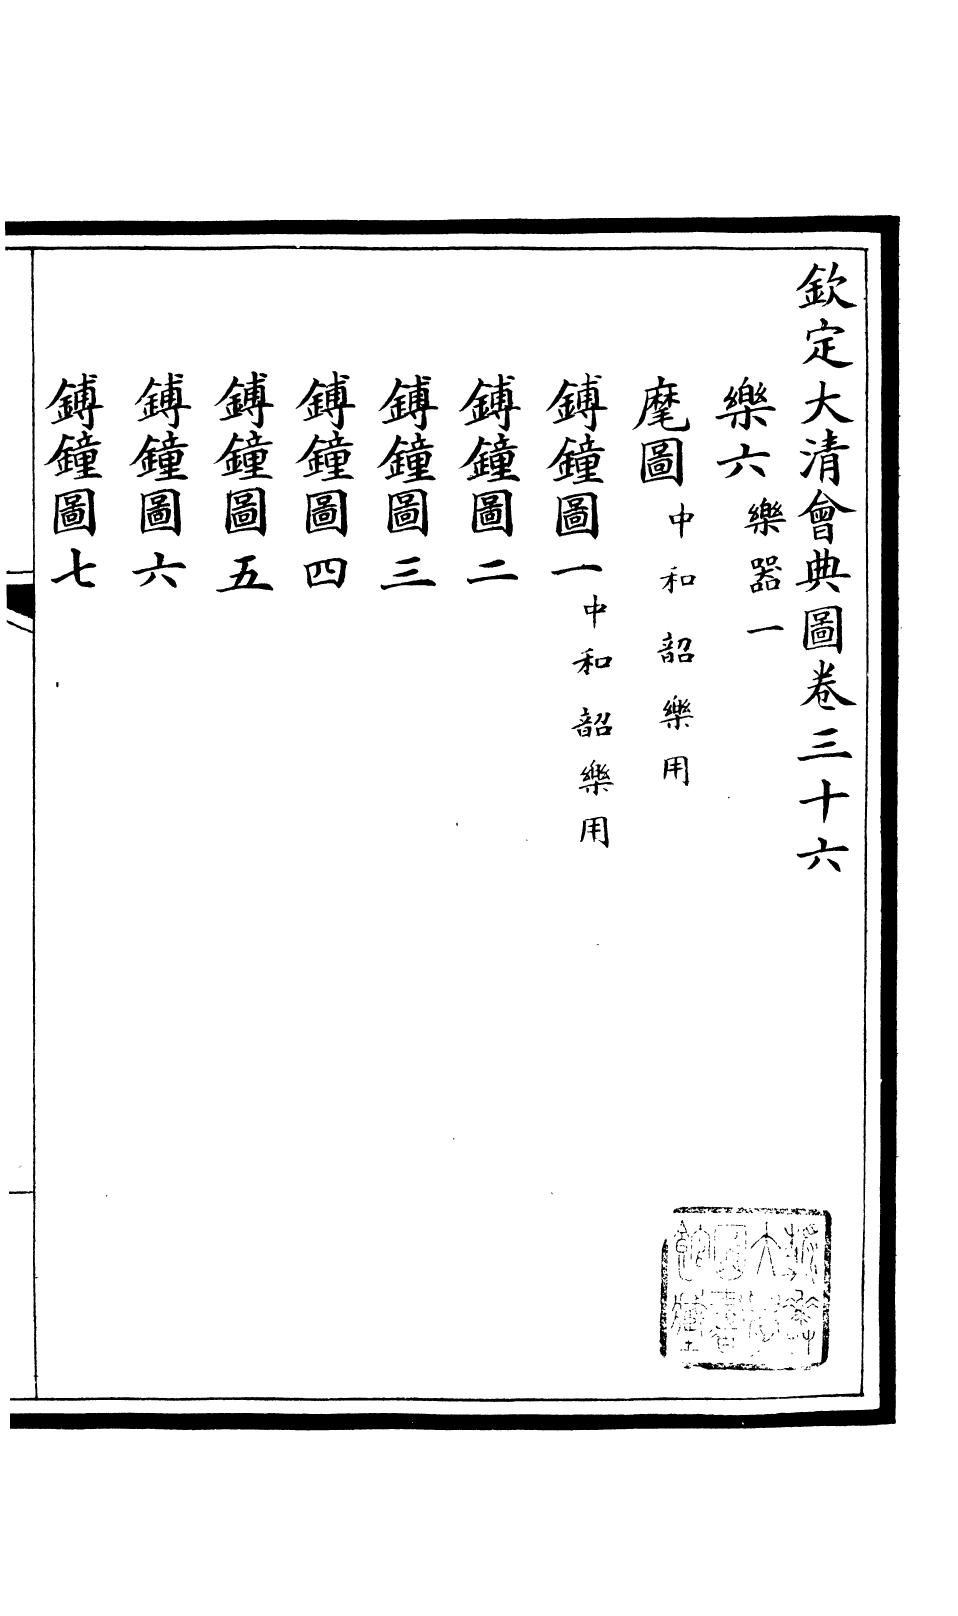 欽定大清會典圖卷三十六
樂六樂器一
麾圖中和韶樂用
鎛鐘圖一中和韶樂用
鎛鐘圖二
鎛鐘圖三
鎛鐘圖四
鎛鐘圖五
鎛鐘圖六
鎛鐘圖七